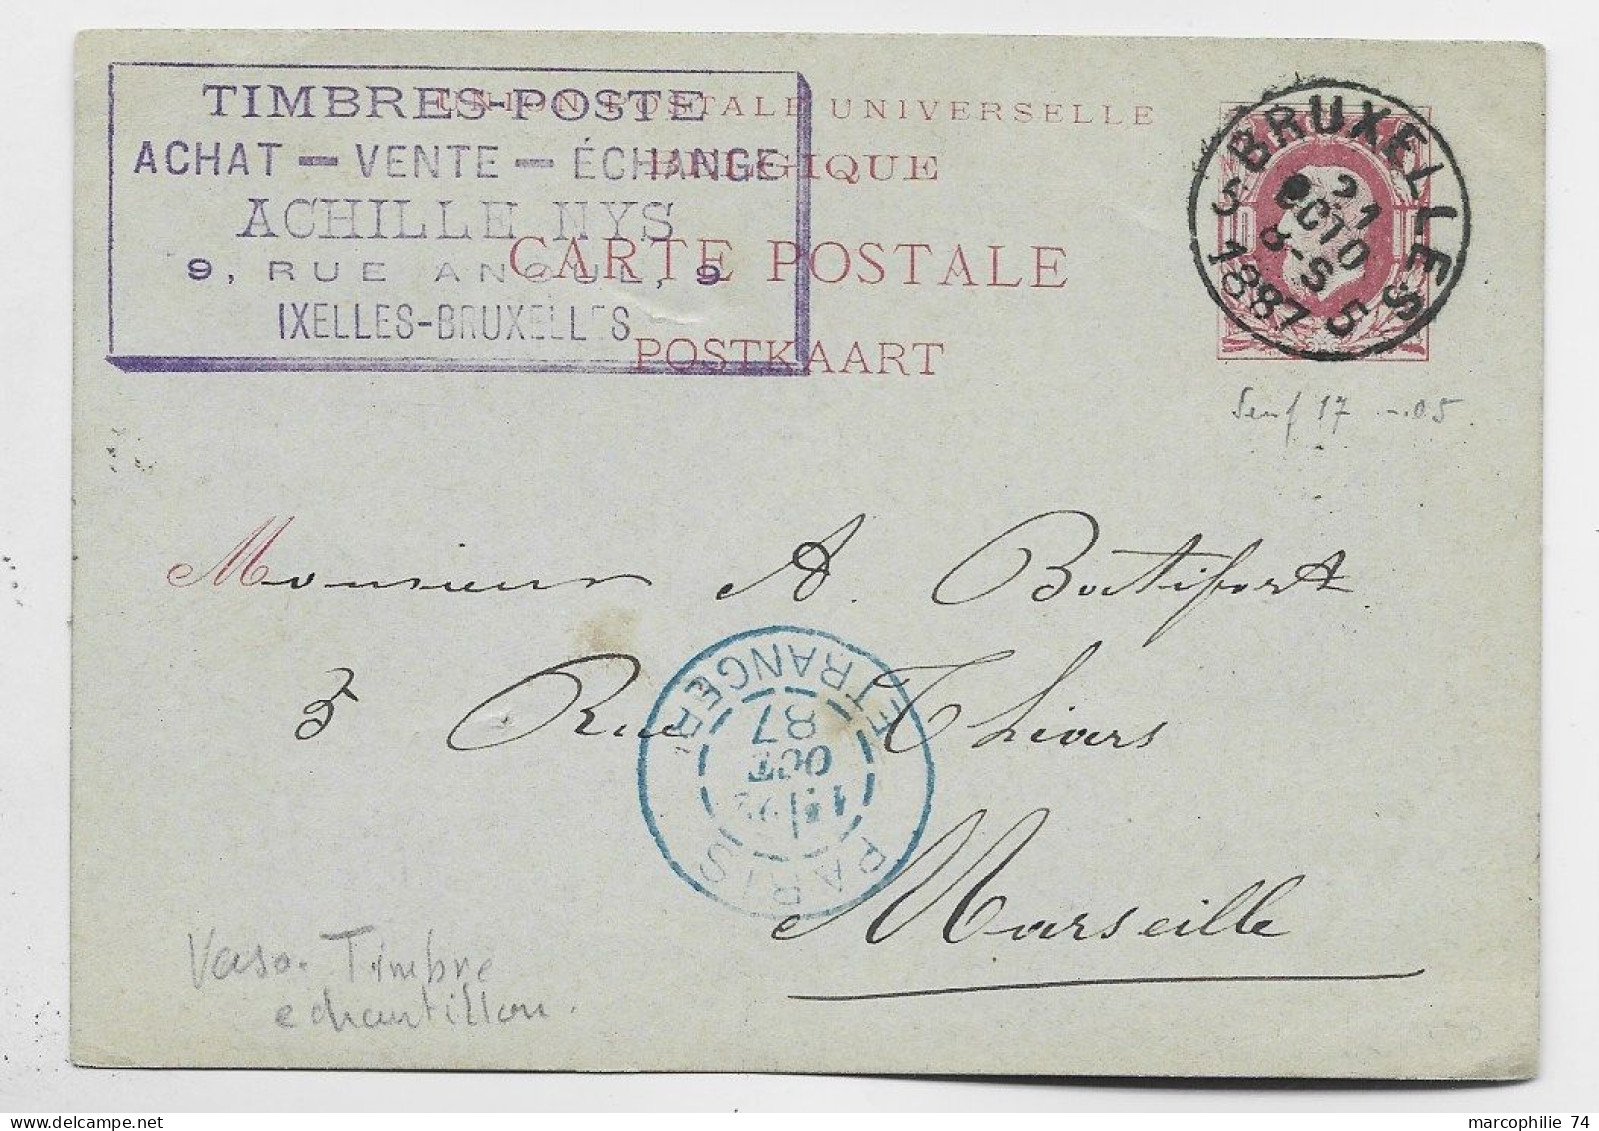 TIMBRES-POSTE
ACHAT — VENTE — ÉCHANGE
ACHILLE NYS
9, RUE ANOUL, 9
IXELLES-BRUXELLES
UNION POSTALE UNIVERSELLE
BELGIQUE
CARTE POSTALE
POSTKAART
BRUXELLES
5 5
21
OCTO
8-S
1887
Senf 17 -.05
Monsieur A. Boutifort
3 Rue Thiars
Marseille
PARIS
ETRANGER
OCT
87
Vaso. Timbre
echantillon.
marcophilie 74